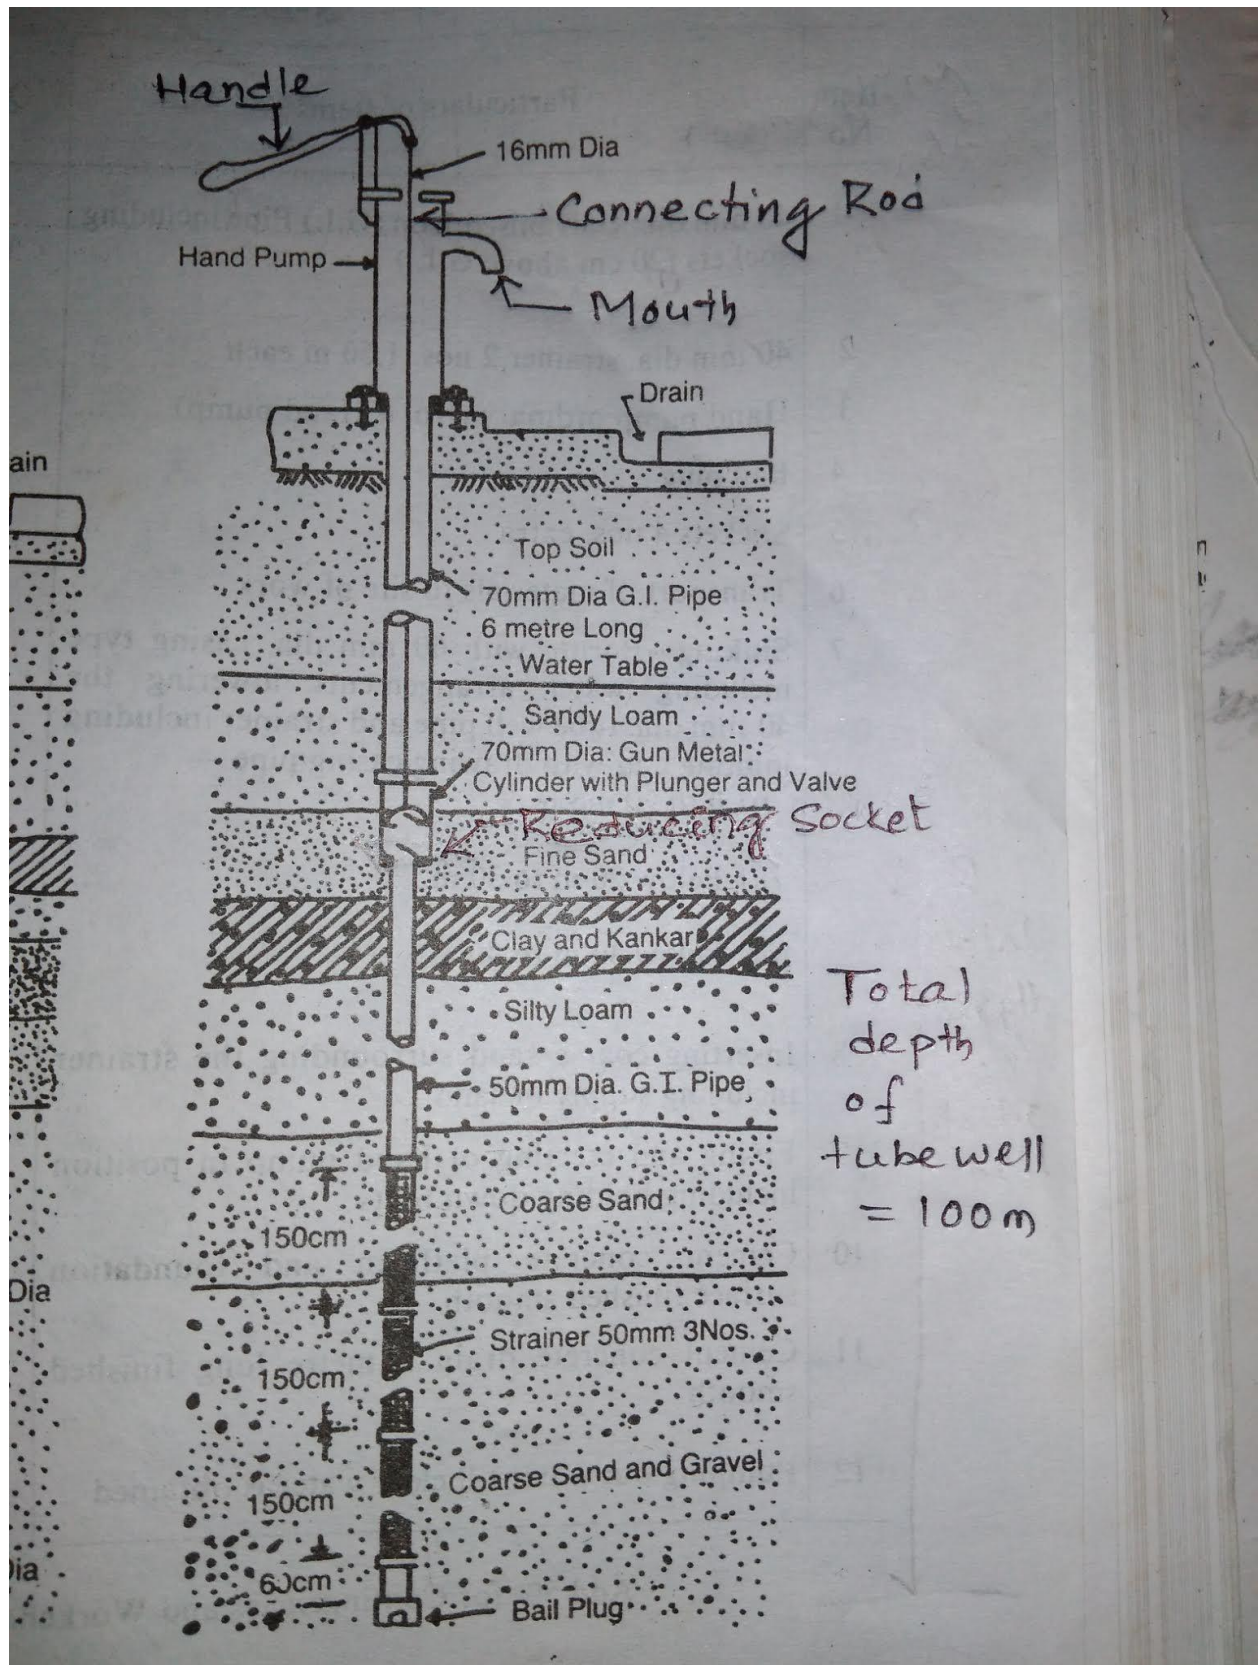 Handle
16mm Dia
Connecting Rod
Hand Pump
Mouth
Drain
ain
Top Soil
70mm Dia G.I. Pipe
6 metre Long
Water Table
Sandy Loam
70mm Dia: Gun Metal
Cylinder with Plunger and Valve
Reducing Socket
Fine Sand
Clay and Kankar
Total
depth
of
tube well
= 100m
Silty Loam
50mm Dia. G.I. Pipe
Coarse Sand
150cm
Dia
Strainer 50mm 3Nos.
150cm
Coarse Sand and Gravel
150cm
ia
60cm
Bail Plug